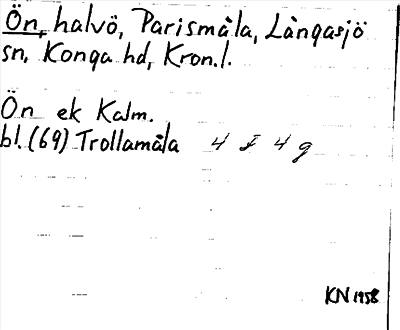 Ön, halvö, Parismåla, Långasjö
sn, Konga hd, Kron.l.
Ön ek Kalm.
bl. (69) Trollamåla 4 F 4 g
KN 1958